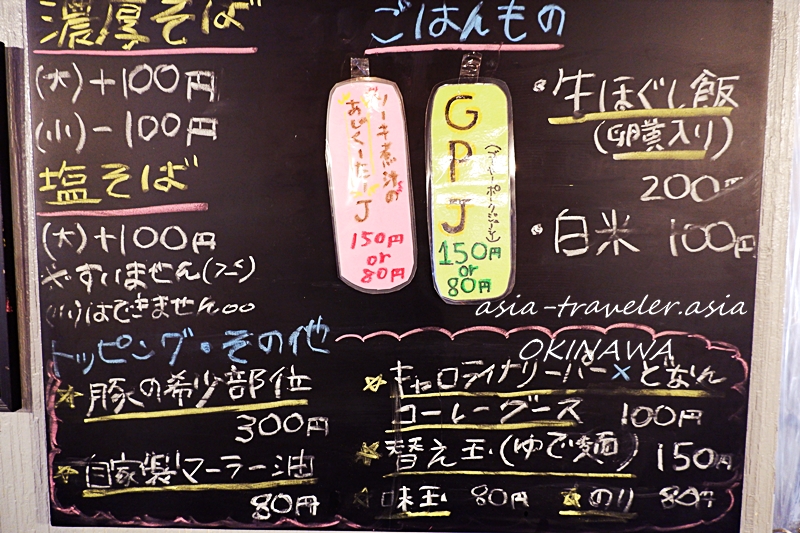 濃厚そば
(大)+100円
(小)-100円
塩そば
(大)+100円
※すいません
(小)はできません。。
ごはんもの
ソーキ煮汁の
あじくーたーJ
150円
or
80円
GPJ
(グレービーポークジューシー)
150円
or
80円
・牛ほぐし飯
(卵黄入り)
200円
・白米 100円
asia-traveler.asia
OKINAWA
トッピング・その他
☆豚の希少部位
300円
☆自家製マーラー油
80円
☆キャロライナリーパー×どなん
コーレーグース 100円
☆替え玉(ゆで麺) 150円
☆味玉 80円 ☆のり 80円